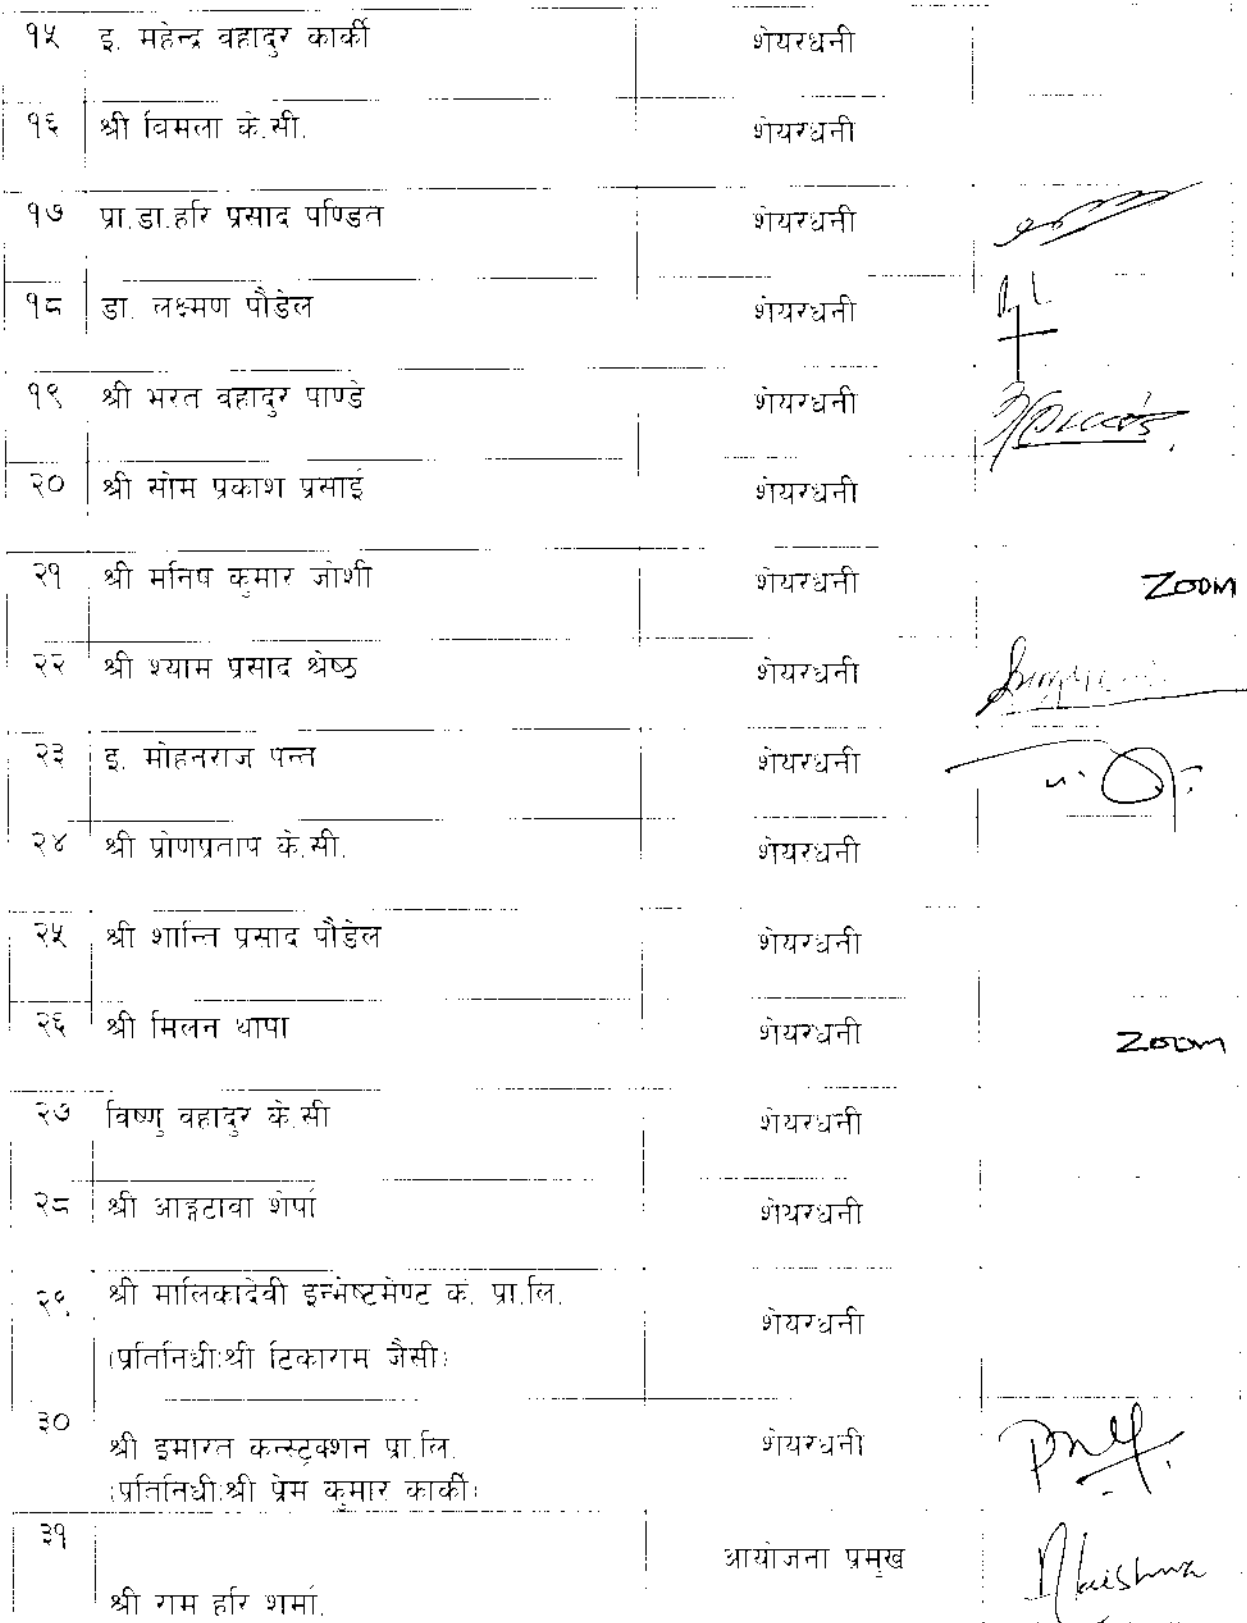 १५ इ. महेन्द्र वहादुर कार्की शेयरधनी
१६ श्री विमला के.सी. शेयरधनी
१७ प्रा.डा.हरि प्रसाद पण्डित शेयरधनी
१८ डा. लक्ष्मण पौडेल शेयरधनी
१९ श्री भरत वहादुर पाण्डे शेयरधनी
२० श्री सोम प्रकाश प्रसाई शेयरधनी
२१ श्री मनिष कुमार जोशी शेयरधनी ZOOM
२२ श्री श्याम प्रसाद श्रेष्ठ शेयरधनी
२३ इ. मोहनराज पन्त शेयरधनी
२४ श्री प्रोणप्रताप के.सी. शेयरधनी
२५ श्री शान्ति प्रसाद पौडेल शेयरधनी
२६ श्री मिलन थापा शेयरधनी ZOOM
२७ विष्णु वहादुर के.सी शेयरधनी
२८ श्री आङ्गटावा शेर्पा शेयरधनी
२९ श्री मालिकादेवी इन्भेष्टमेण्ट कं. प्रा.लि. शेयरधनी
(प्रतिनिधी:श्री टिकाराम जैसी)
३० श्री इमारत कन्स्ट्रक्शन प्रा.लि. शेयरधनी
(प्रतिनिधी:श्री प्रेम कुमार कार्की)
३१ आयोजना प्रमुख
श्री राम हरि शर्मा.